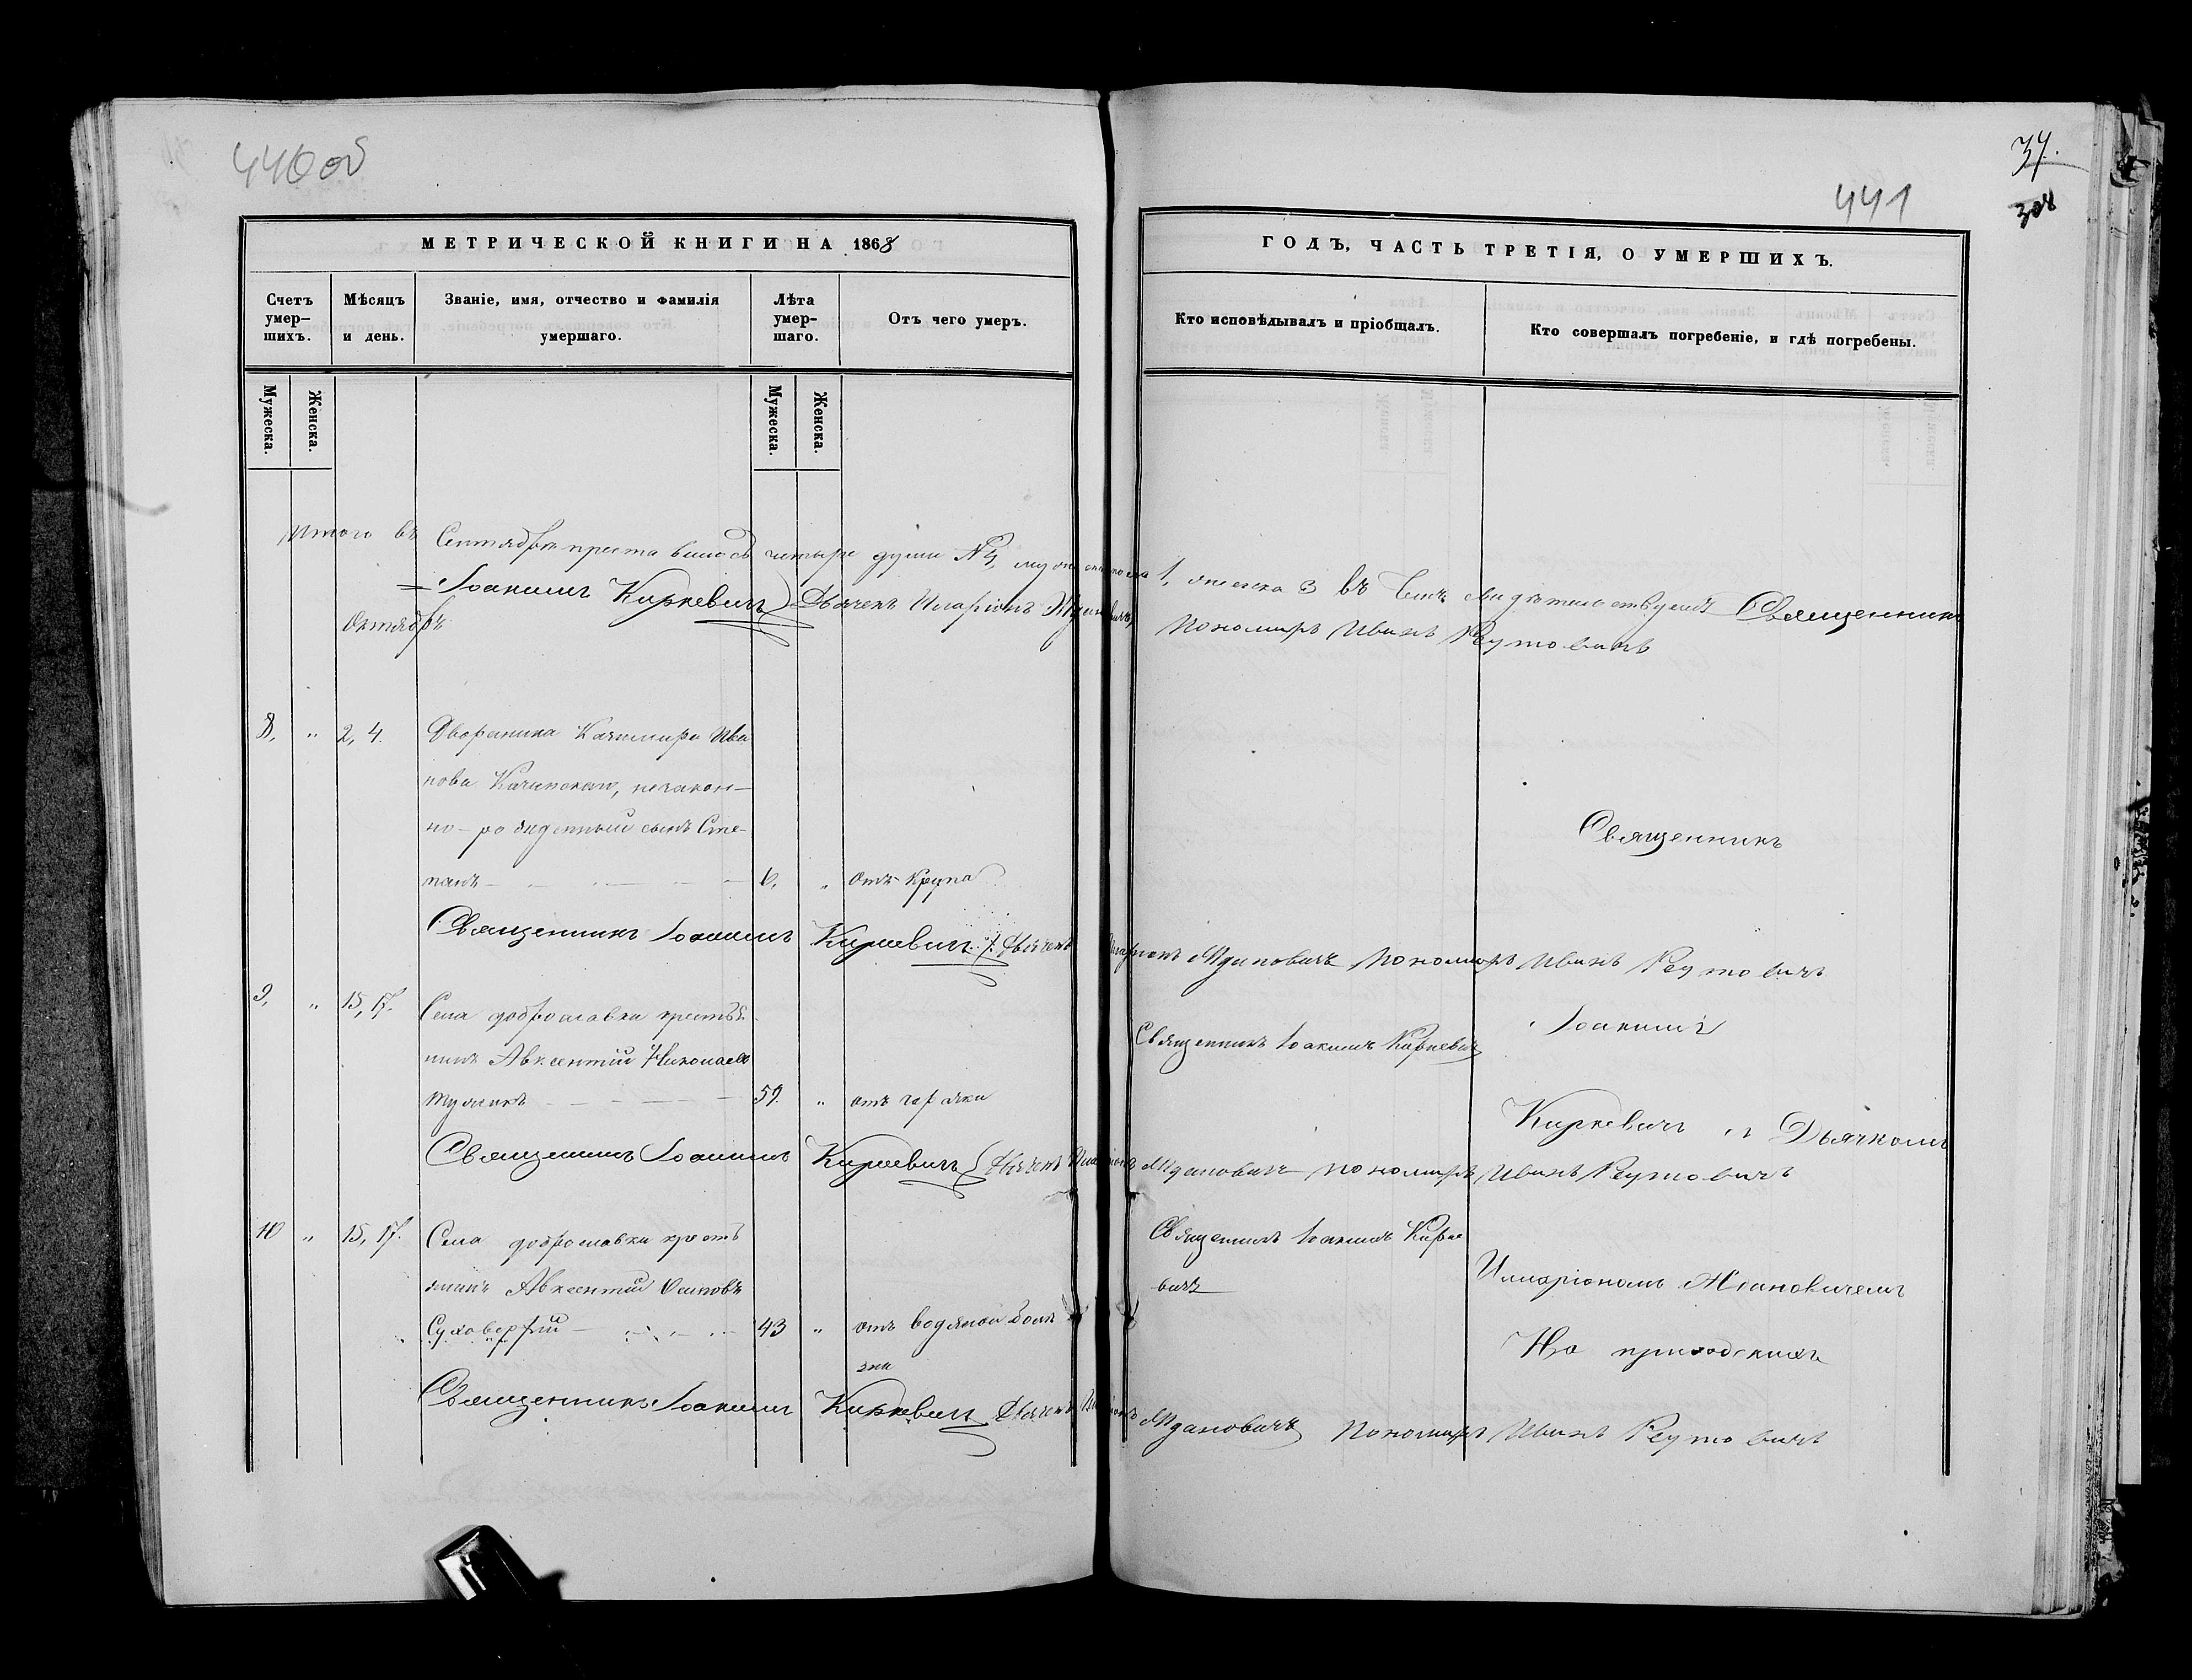 440 об
37.
441
304
МЕТРИЧЕСКОЙ КНИГИ НА 1868
ГОДЪ, ЧАСТЬ ТРЕТІЯ, О УМЕРШИХЪ.
Счетъ умер-шихъ.
Мѣсяцъ и день.
Званіе, имя, отчество и фамилія умершаго.
Лѣта умер-шаго.
Отъ чего умеръ.
Кто исповѣдывалъ и пріобщалъ.
Кто совершалъ погребеніе, и гдѣ погребены.
Мужеска.
Женска.
Мужеска.
Женска.
Итого въ Сентябрѣ преставилось четыре души №4, мужеска пола 1, женска 3 въ чемъ свидѣтельствуемъ Священникъ
= Іоакимъ Киркевичъ Дьячекъ Иларіонъ Ждановичъ Пономарь Иванъ Реутовичъ
Октябрь
8, " 2, 4. Дворянина Казимира Ива
нова Качинскаго, незакон-
но-рожденный сынъ Сте-
панъ 6, " отъ крупа
Священникъ
Священникъ Іоакимъ Киркевичъ Дьячекъ Иларіонъ Ждановичъ Пономарь Иванъ Реутовичъ
9, " 15, 17. Села Доброславки крестья
нинъ Авксентій Николаевъ
59. " отъ горячки
Священникъ Іоакимъ Киркевичъ
Іоакимъ
Киркевичъ съ Дьячкомъ
Священникъ Іоакимъ Киркевичъ Дьячекъ Иларіонъ Ждановичъ Пономарь Иванъ Реутовичъ
10 " 15, 17. Села Доброславки кресть
янинъ Авксентій Осиповъ
Суховерхій 43 " отъ водяной болѣ
зни
Священникъ Іоакимъ Кирке
вичъ
Иларіономъ Ждановичемъ
На приходскихъ
Священникъ Іоакимъ Киркевичъ Дьячекъ Иларіонъ Ждановичъ Пономарь Иванъ Реутовичъ